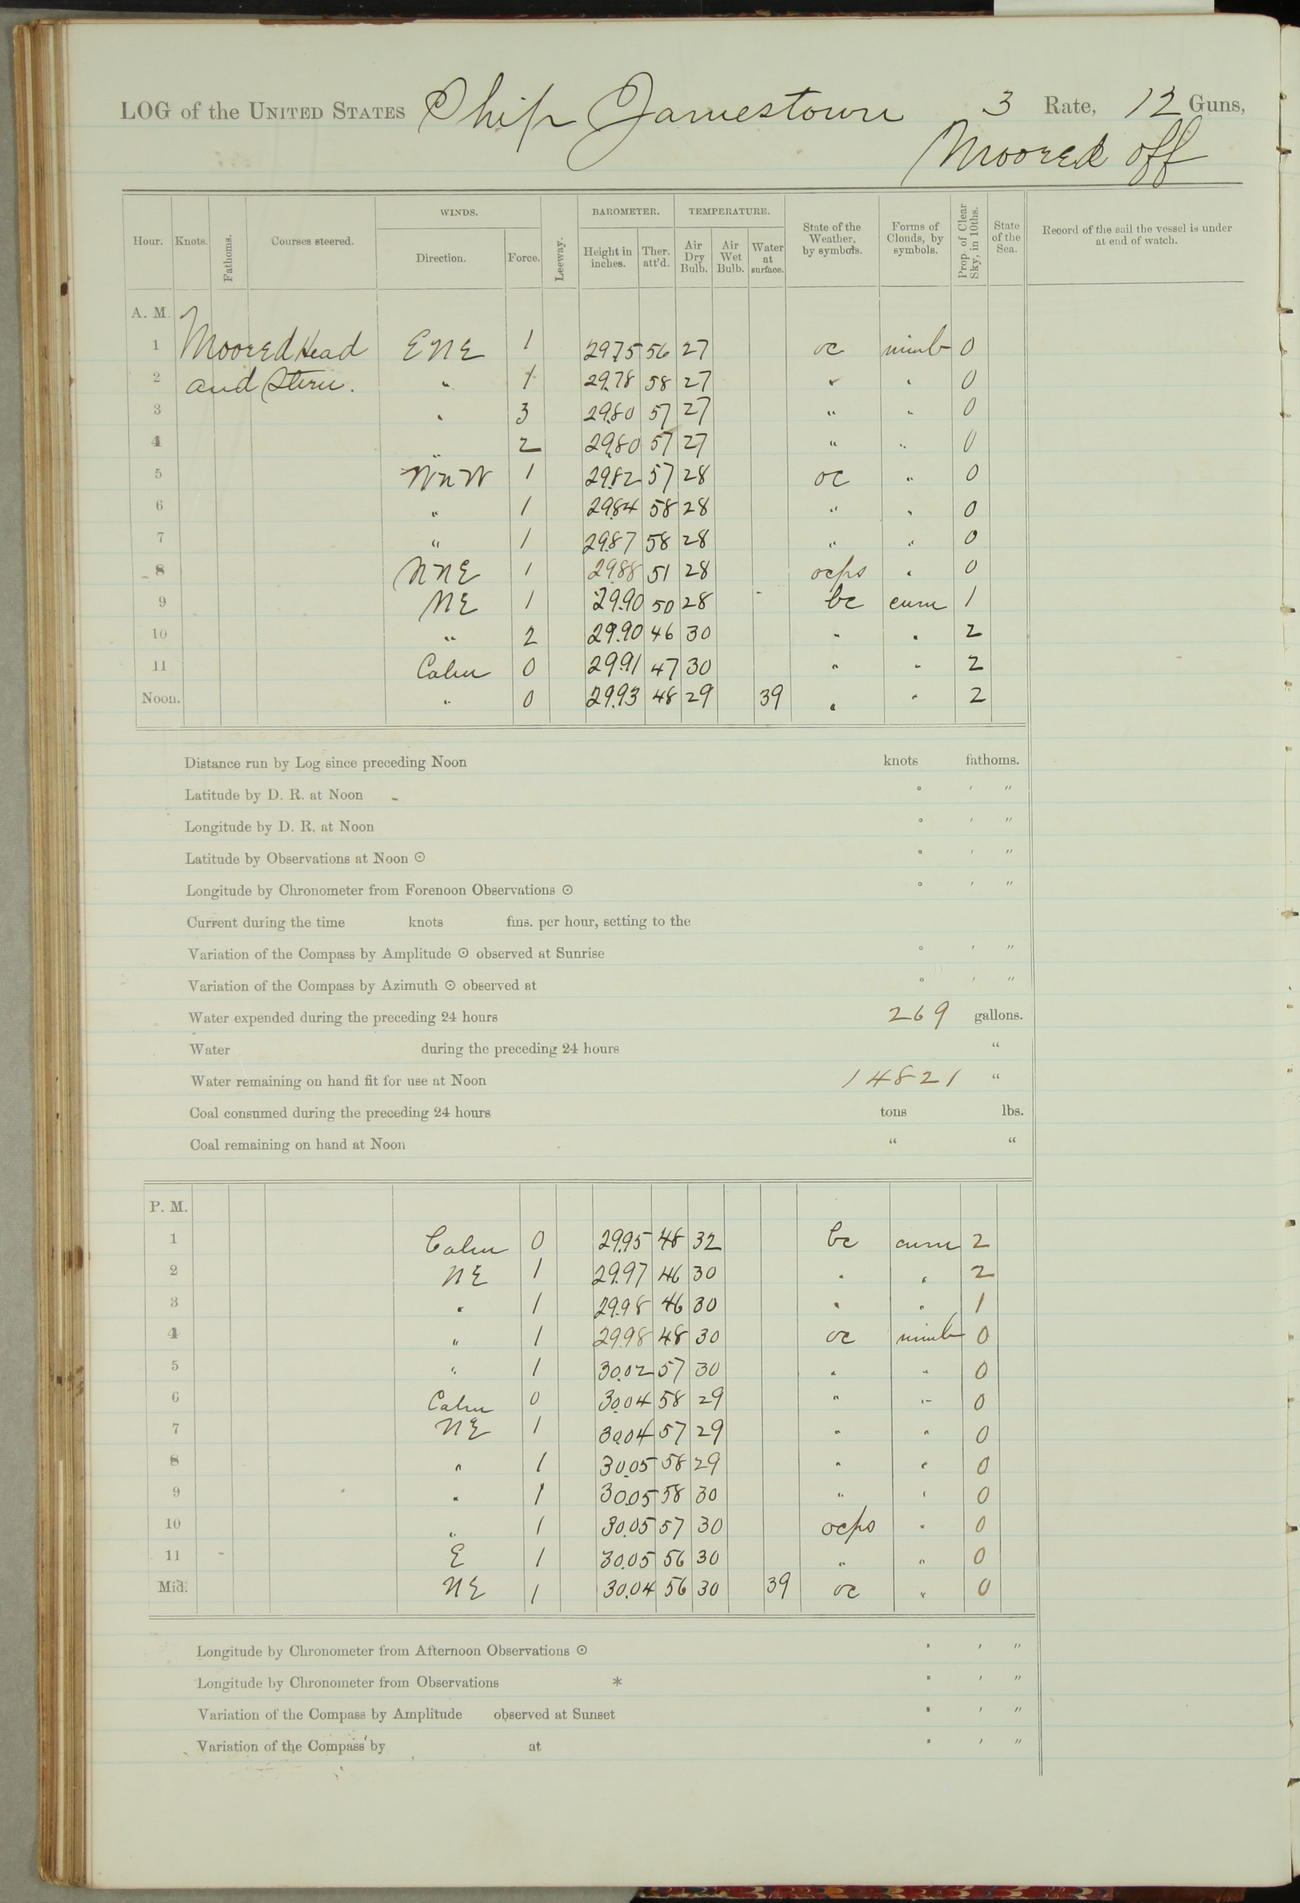 LOG of the UNITED STATES Ship Jamestown 3 Rate, 12 Guns,
Moored off
Hour. Knots. Fathoms. Courses steered. WINDS. Direction. Force. Leeway. BAROMETER. Height in inches. Ther. att'd. TEMPERATURE. Air Dry Bulb. Air Wet Bulb. Water at surface. State of the Weather, by symbols. Forms of Clouds, by symbols. Prop. of Clear Sky, in 10ths. State of the Sea. Record of the sail the vessel is under at end of watch.
A. M.
1 Moored Head ENE 1 29.75 56 27 oc nimb 0
2 and Stern. " 1 29.78 58 27 " " 0
3 " 3 29.80 57 27 " " 0
4 " 2 29.80 57 27 " " 0
5 WNW 1 29.82 57 28 oc " 0
6 " 1 29.84 58 28 " " 0
7 " 1 29.87 58 28 " " 0
8 NNE 1 29.88 51 28 ocps " 0
9 NE 1 29.90 50 28 bc cum 1
10 " 2 29.90 46 30 " " 2
11 Calm 0 29.91 47 30 " " 2
Noon. " 0 29.93 48 29 39 " " 2
Distance run by Log since preceding Noon knots fathoms.
Latitude by D. R. at Noon ° ′ ″
Longitude by D. R. at Noon ° ′ ″
Latitude by Observations at Noon ☉ ° ′ ″
Longitude by Chronometer from Forenoon Observations ☉ ° ′ ″
Current during the time knots fms. per hour, setting to the
Variation of the Compass by Amplitude ☉ observed at Sunrise ° ′ ″
Variation of the Compass by Azimuth ☉ observed at ° ′ ″
Water expended during the preceding 24 hours 269 gallons.
Water during the preceding 24 hours "
Water remaining on hand fit for use at Noon 14821 "
Coal consumed during the preceding 24 hours tons lbs.
Coal remaining on hand at Noon " "
P. M.
1 Calm 0 29.95 48 32 bc cum 2
2 NE 1 29.97 46 30 " " 2
3 " 1 29.98 46 30 " " 1
4 " 1 29.98 48 30 oc nimb 0
5 " 1 30.02 57 30 " " 0
6 Calm 0 30.04 58 29 " " 0
7 NE 1 30.04 57 29 " " 0
8 " 1 30.05 58 29 " " 0
9 " 1 30.05 58 30 " " 0
10 " 1 30.05 57 30 ocps " 0
11 E 1 30.05 56 30 " " 0
Mid. NE 1 30.04 56 30 39 oc " 0
Longitude by Chronometer from Afternoon Observations ☉ ° ′ ″
Longitude by Chronometer from Observations * ° ′ ″
Variation of the Compass by Amplitude observed at Sunset ° ′ ″
Variation of the Compass by at ° ′ ″